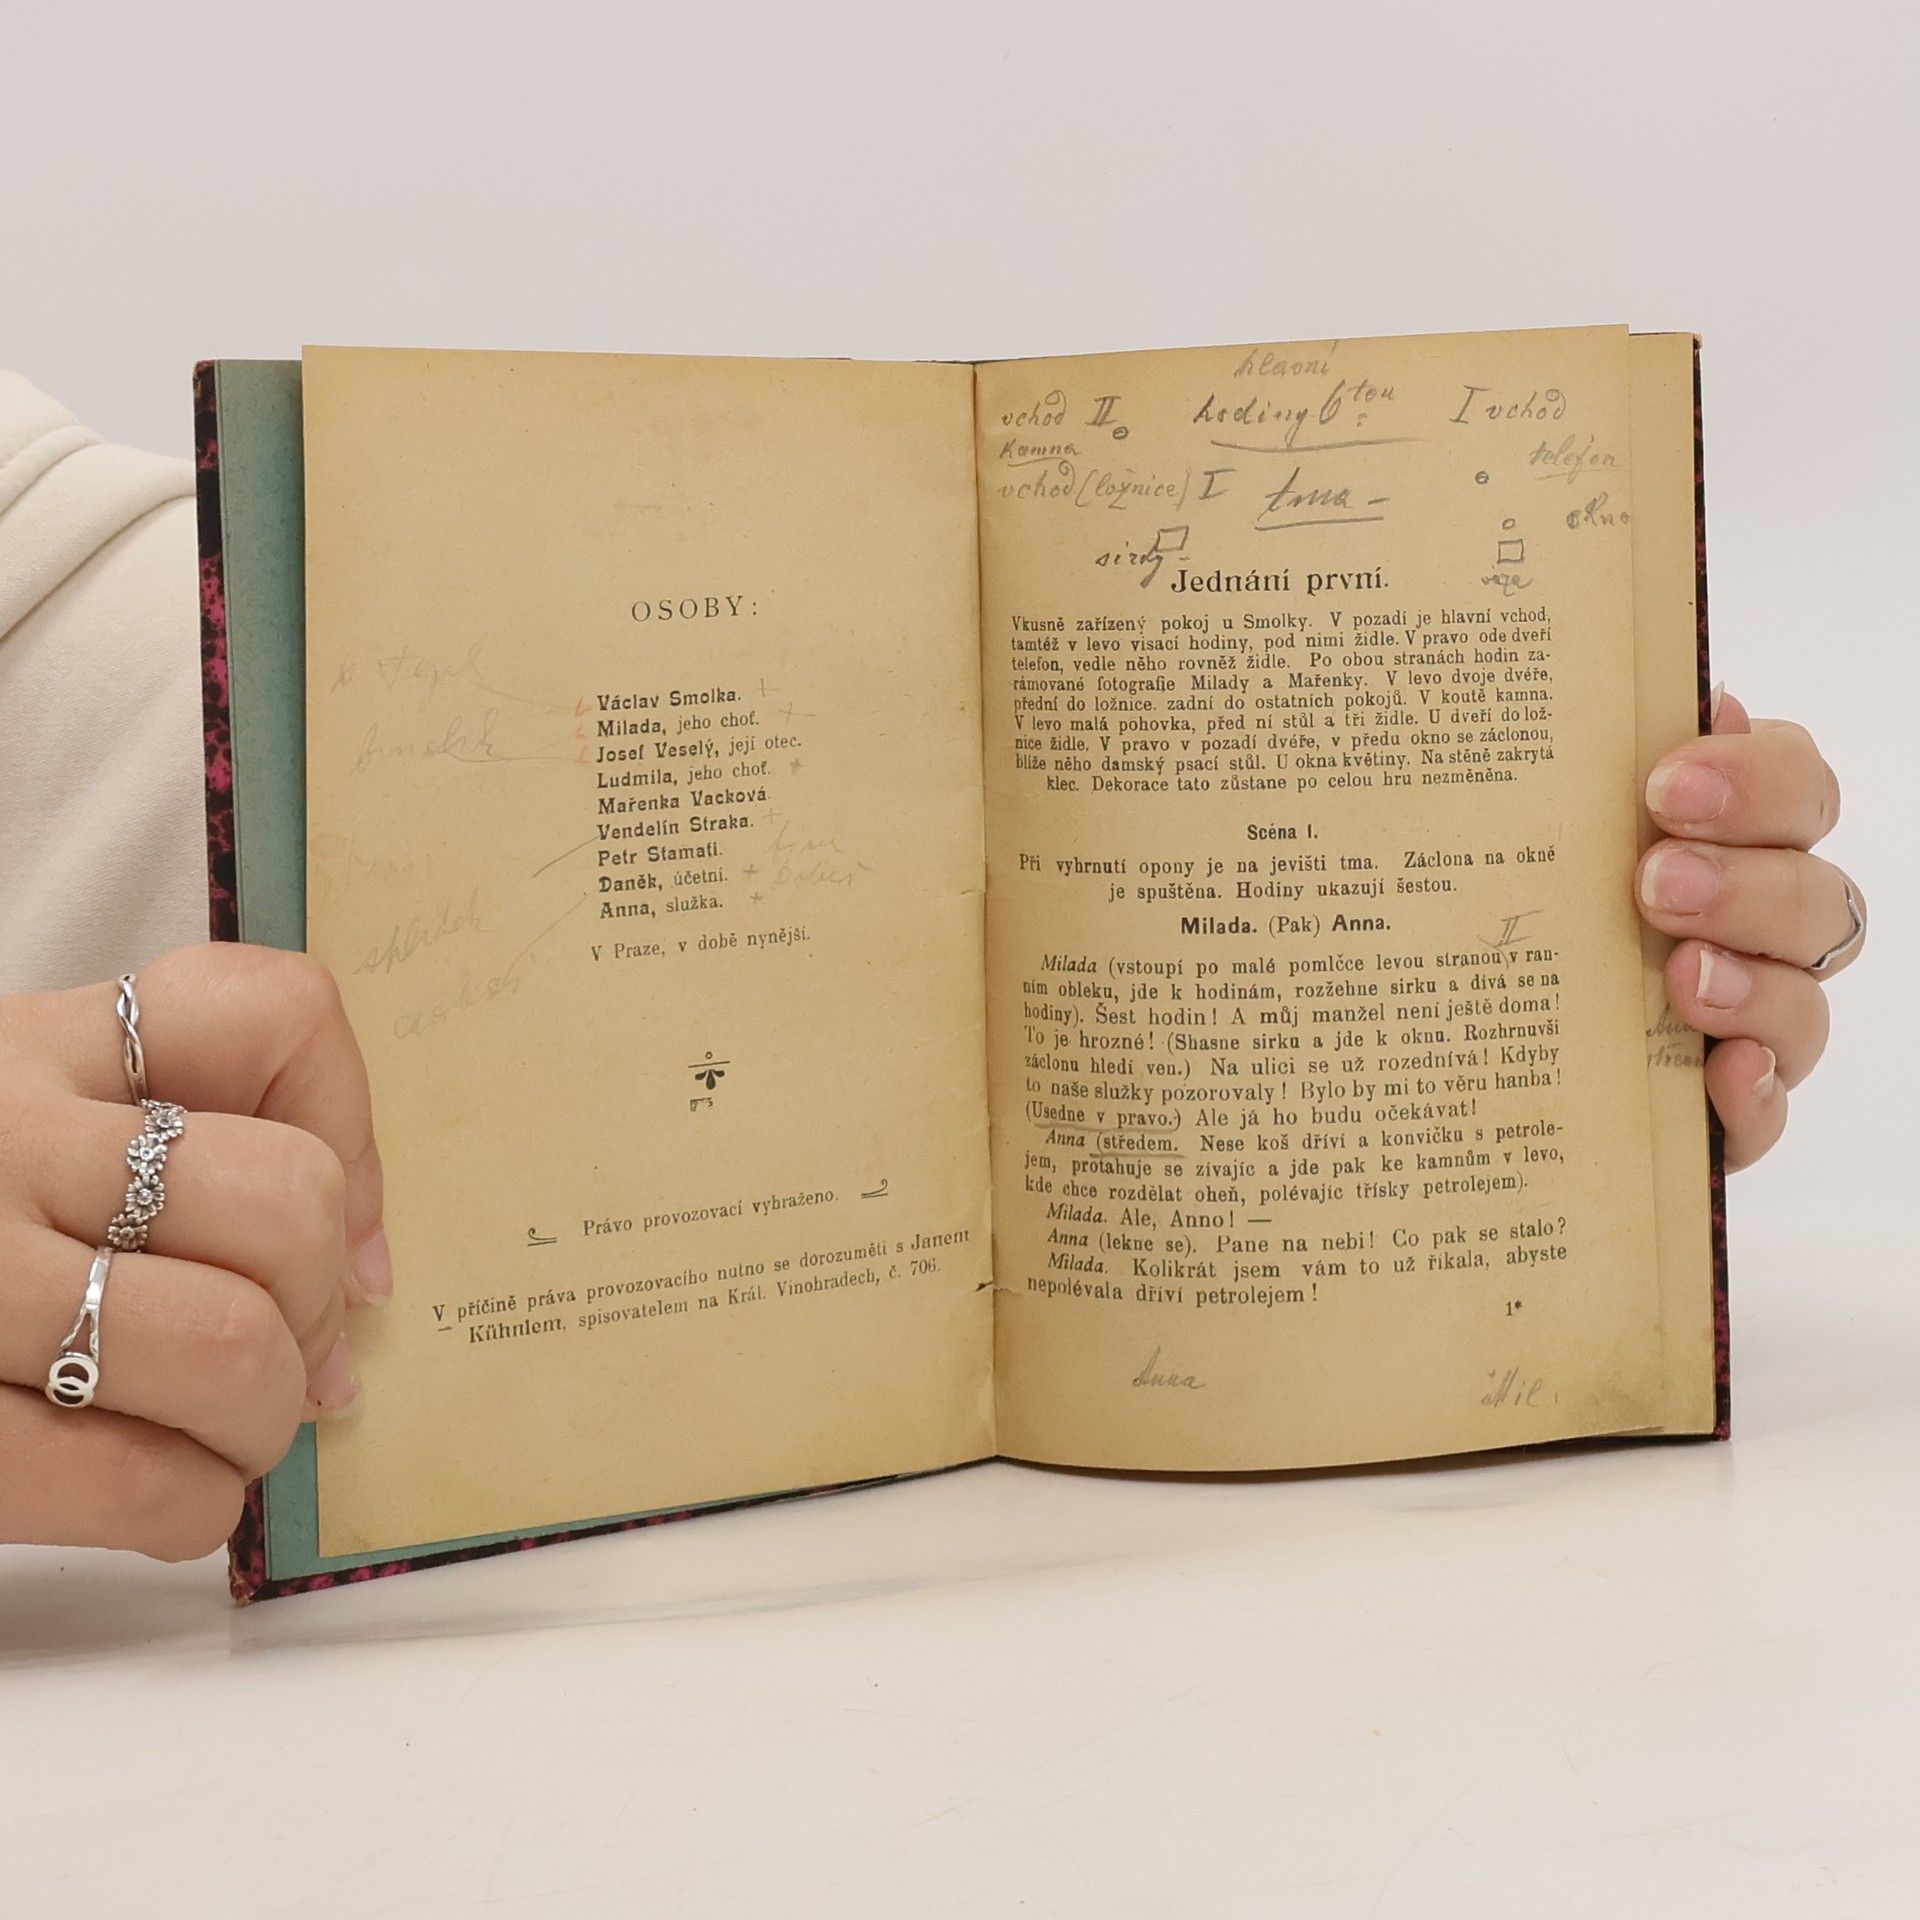 OSOBY:
Václav Smolka.
Milada, jeho choť.
Josef Veselý, její otec.
Ludmila, jeho choť.
Mařenka Vacková.
Vendelín Straka.
Petr Stamati.
Daněk, účetní.
Anna, služka.
V Praze, v době nynější.
Právo provozovací vybraženo.
V příčině práva provozovacího nutno se dorozuměti s Janem
Kühnlem, spisovatelem na Král. Vinohradech, č. 706.
hlavní
vchod II hodiny 6tou I vchod
Kamna telefon
vchod (ložnice) I tma –
okno
sirky
Jednání první.
Vkusně zařízený pokoj u Smolky. V pozadí je hlavní vchod,
tamtéž v levo visací hodiny, pod nimi židle. V pravo ode dveří
telefon, vedle něho rovněž židle. Po obou stranách hodin za-
rámované fotografie Milady a Mařenky. V levo dvoje dvéře,
přední do ložnice. zadní do ostatních pokojů. V koutě kamna.
V levo malá pohovka, před ní stůl a tři židle. U dveří do lož-
nice židle. V pravo v pozadí dvéře, v předu okno se záclonou,
blíže něho damský psací stůl. U okna květiny. Na stěně zakrytá
klec. Dekorace tato zůstane po celou hru nezměněna.
Scéna I.
Při vyhrnutí opony je na jevišti tma. Záclona na okně
je spuštěna. Hodiny ukazují šestou.
Milada. (Pak) Anna.
II
Milada (vstoupí po malé pomlčce levou stranou v ran-
ním obleku, jde k hodinám, rozžehne sirku a dívá se na
hodiny). Šest hodin! A můj manžel není ještě doma!
To je hrozné! (Shasne sirku a jde k oknu. Rozhrnuvši
záclonu hledí ven.) Na ulici se už rozednívá! Kdyby
to naše služky pozorovaly! Bylo by mi to věru hanba!
(Usedne v pravo.) Ale já ho budu očekávat!
Anna (středem. Nese koš dříví a konvičku s petrole-
jem, protahuje se zívajíc a jde pak ke kamnům v levo,
kde chce rozdělat oheň, polévajíc třísky petrolejem).
Milada. Ale, Anno! —
Anna (lekne se). Pane na nebi! Co pak se stalo?
Milada. Kolikrát jsem vám to už říkala, abyste
nepolévala dříví petrolejem!
1*
Anna Mil.